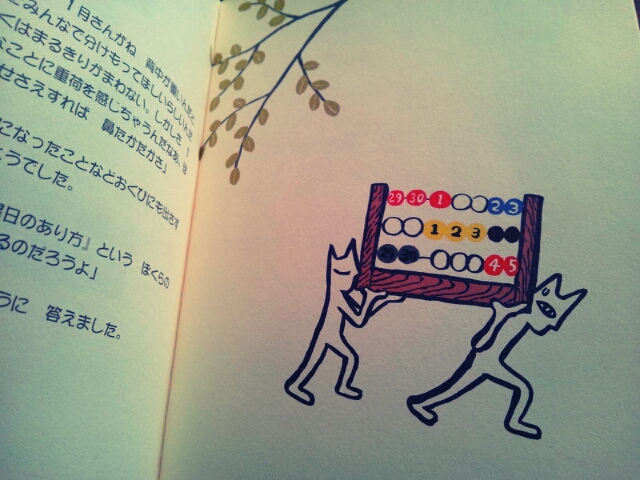 1月さんがね 背中が重いんだと
くみんなで分けもってほしいらしいんだ
くはまるきりかまわない。しかしさ 1
なことに重荷を感じちゃうんだなあ。ほ
せさえすれば 鼻たかだかさ」
になったことなどおくびにも出さず
ようでした。
曜日のあり方』という ぼくらの
るのだろうよ」
うに 答えました。
29 30 1 2 3
1 2 3
4 5